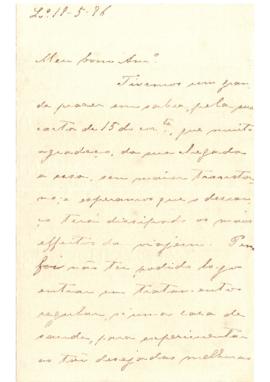 Lx. 18-5-96
Meu bom Amo.
Tivemos um gran
de prazer em saber, pela sua
carta de 15 do corte, que muito
agradeço, da sua chegada
a essa, sem maior transtor
no, e esperamos que o descan
ço terá dissipado os maos
effeitos da viajem.
foi não ter podido logo
entrar em tratamentos
regular, n'uma casa de
saude, para experimentar
as tão desejadas melhoras